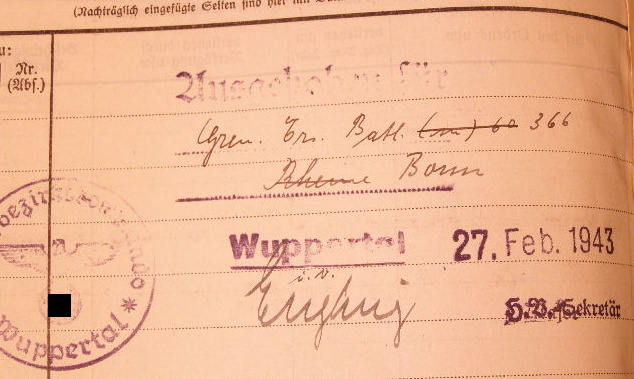 (Nachträglich eingefügte Seiten sind hier mit
u:
Nr.
(Abs.)
Ausgehoben für
Gren. Ers. Batl. (m) 60 366
Rheine Bonn
Wuppertal 27. Feb. 1943
i.V.
H.V.-Sekretär
Wuppertal *